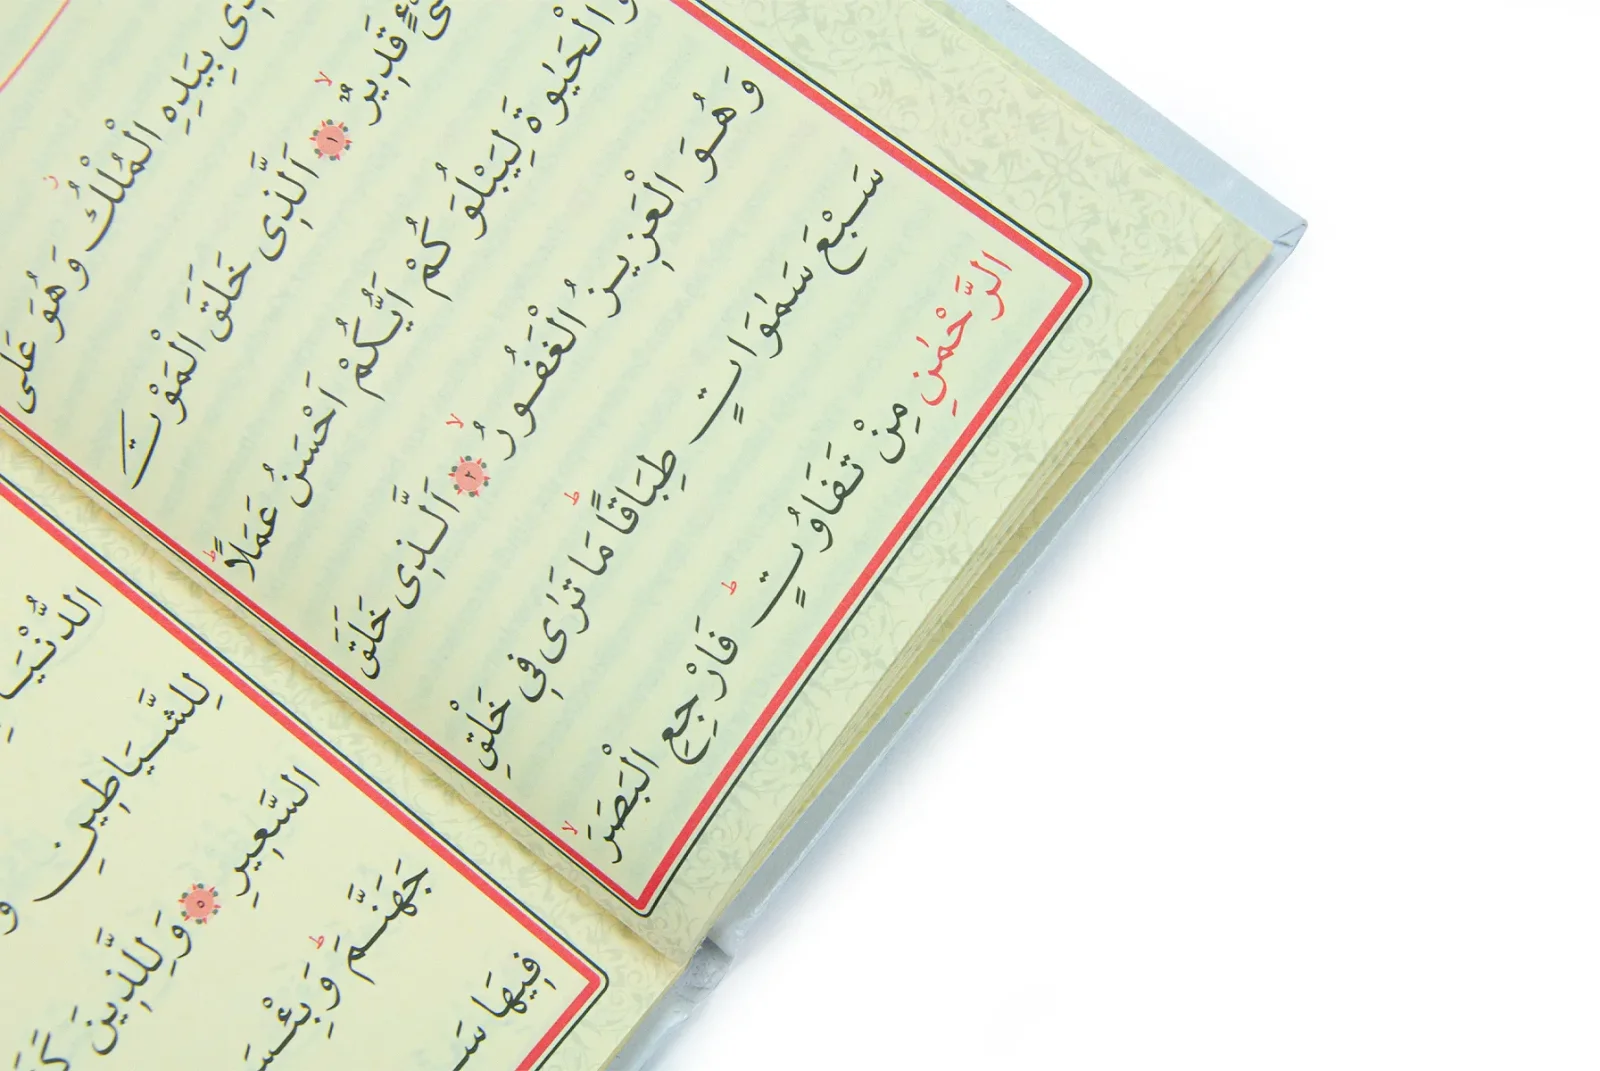 بِيَدِهِ الْمُلْكُ وَهُوَ عَلٰى
قَدِيرٌ ۙ ﴿١﴾ اَلَّذِى خَلَقَ الْمَوْتَ
وَالْحَيٰوةَ لِيَبْلُوَكُمْ اَيُّكُمْ اَحْسَنُ عَمَلًاۜ
وَهُوَ الْعَزِيزُ الْغَفُورُۙ ﴿٢﴾ اَلَّذِى خَلَقَ
سَبْعَ سَمٰوَاتٍ طِبَاقًاۜ مَا تَرٰى فِى خَلْقِ
الرَّحْمٰنِ مِنْ تَفَاوُتٍۜ فَارْجِعِ الْبَصَرَۙ
الدُّنْيَا
لِلشَّيَاطِينِ
السَّعِيرِ ﴿٥﴾ وَلِلَّذِينَ
جَهَنَّمَۜ
فِيهَا